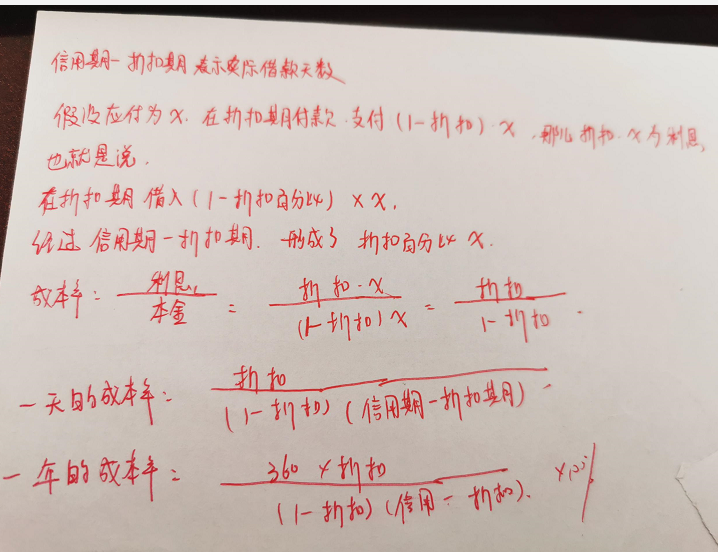 信用期-折扣期 表示实际借款天数
假设应付为x. 在折扣期付款.支付(1-折扣)·x,那么折扣·x为利息,
也就是说.
在折扣期借入(1-折扣百分比)×x,
经过信用期-折扣期.形成了折扣百分比x.
成本率: 利息/本金 = 折扣·x/(1-折扣)x = 折扣/1-折扣.
一天的成本率: 折扣/(1-折扣)(信用期-折扣期)
一年的成本率: 360×折扣/(1-折扣)(信用-折扣). ×100%